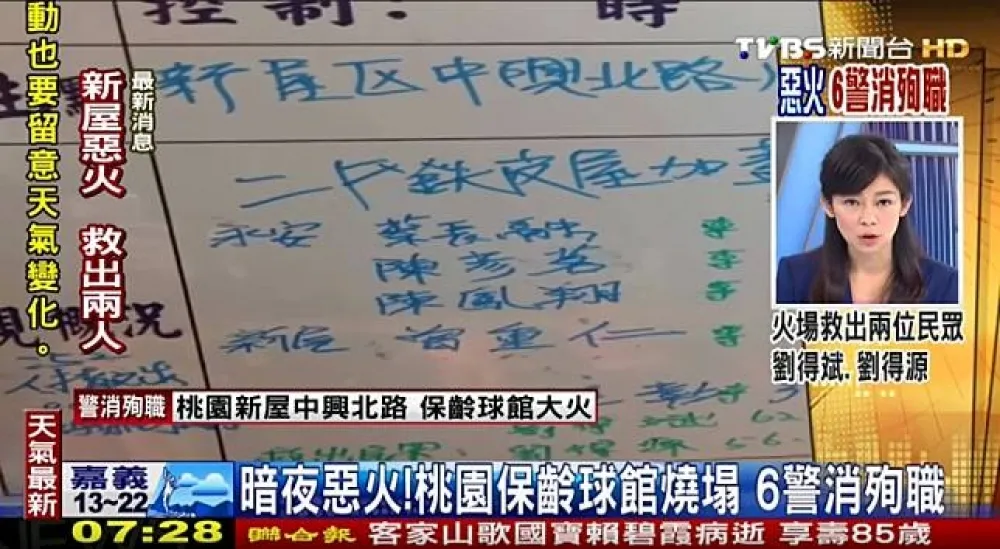 控制！ 時
TVBS新聞台HD
惡火 6警消殉職
動也要留意天氣變化。
新屋惡火 救出兩人
最新消息
新屋区中興北路
二F鉄皮屋加蓋
永安
陳彥茗
陳鳳翔
新屋 曾重仁
概況
火場救出兩位民眾
劉得斌.劉得源
警消殉職 桃園新屋中興北路 保齡球館大火
天氣最新
嘉義
13~22
暗夜惡火!桃園保齡球館燒塌 6警消殉職
07:28 聯合報 客家山歌國寶賴碧霞病逝 享壽85歲